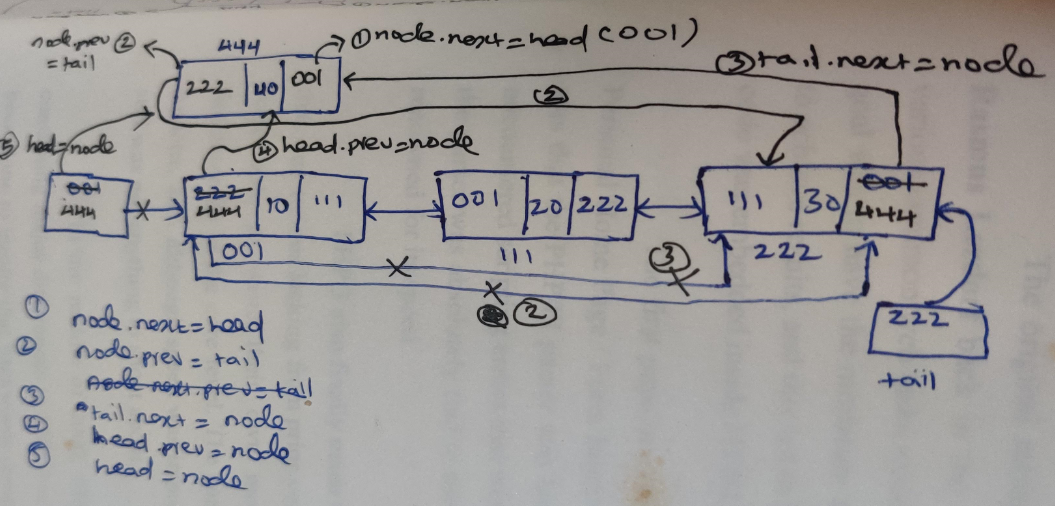 node.prev ②
= tail
444
① node.next = head (001)
222 40 001
③ tail.next = node
②
⑤ head = node
④ head.prev = node
001
444
222
444
10
111
001 20 222
111 30
001
444
001
111
222
③
②
222
tail
① node.next = head
② node.prev = tail
node.next.prev = tail
③ tail.next = node
④ head.prev = node
⑤ head = node